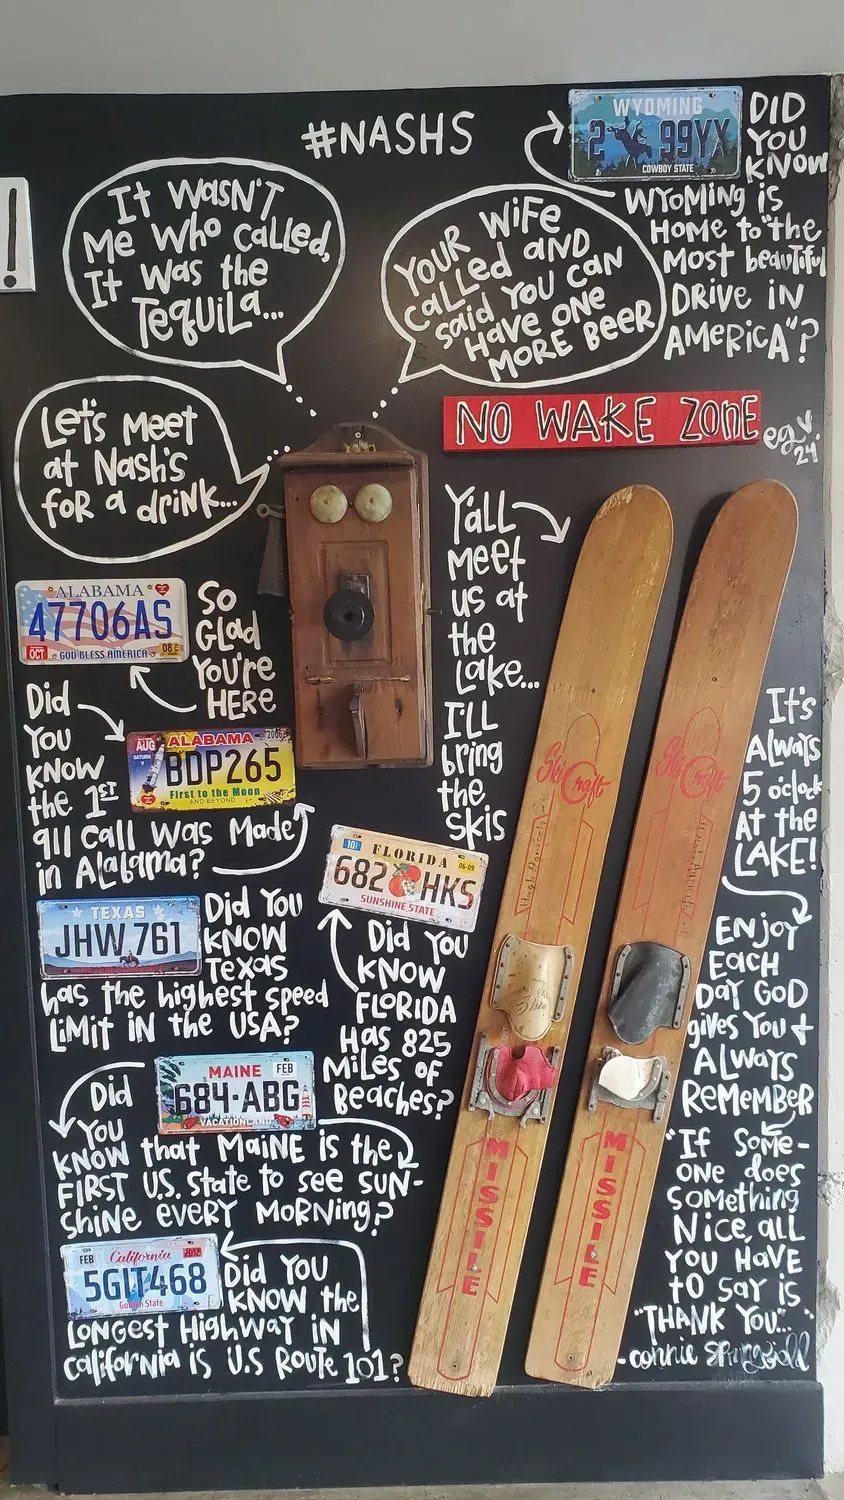 #NASHS
WYOMING
2 99YX
COWBOY STATE
DID
YOU
KNOW
WYOMING is
HOME to "the
MOST beautiful
DRIVE IN
AMERICA"?
!
It WASN'T
Me WHo CALLed,
It WAS the
TEQUILA...
YOUR WIFE
CALLED AND
said YOU CAN
HAVE ONE
MORE BEER
Let's Meet
at Nash's
for a drink...
NO WAKE ZONE
egv
24'
Y'all
Meet
us at
the
Lake...
I'LL
bring
the
SKIS
ALABAMA
47706AS
OCT
08
GOD BLESS AMERICA
So
GLad
You're
HERE
Did
YOU
KNOW
the 1ST
911 CALL WAS Made
in Alabama?
AUG
ALABAMA
SATURN V
BDP265
First to the Moon
AND BEYOND
FLORIDA
10
06-09
682 HKS
SUNSHINE STATE
Did YOU
KNOW
FLORIDA
HAS 825
MILES OF
BEACHES?
TEXAS
JHW 761
Did YOU
KNOW
TEXAS
has the highest speed
LIMIT IN the USA?
MAINE
FEB
684·ABG
VACATIONLAND
Did
YOU
KNOW that MAINE is the
FIRST U.S. State to see SUN-
SHINE EVERY MORNING?
FEB
California
2012
5GIT468
Golden State
Did YOU
KNOW the
LONGEST HIGHWAY IN
California is U.S ROUTE 101?
Ski Craft
Ski Craft
MISSILE
MISSILE
It's
ALWAYS
5 oclock
At the
LAKE!
ENJOY
EACH
DAY GOD
gives YOU +
ALWAYS
REMEMBER
"If SOME-
ONE does
something
Nice, all
YOU HAVE
to SAY is
"THANK YOU"..."
-connie